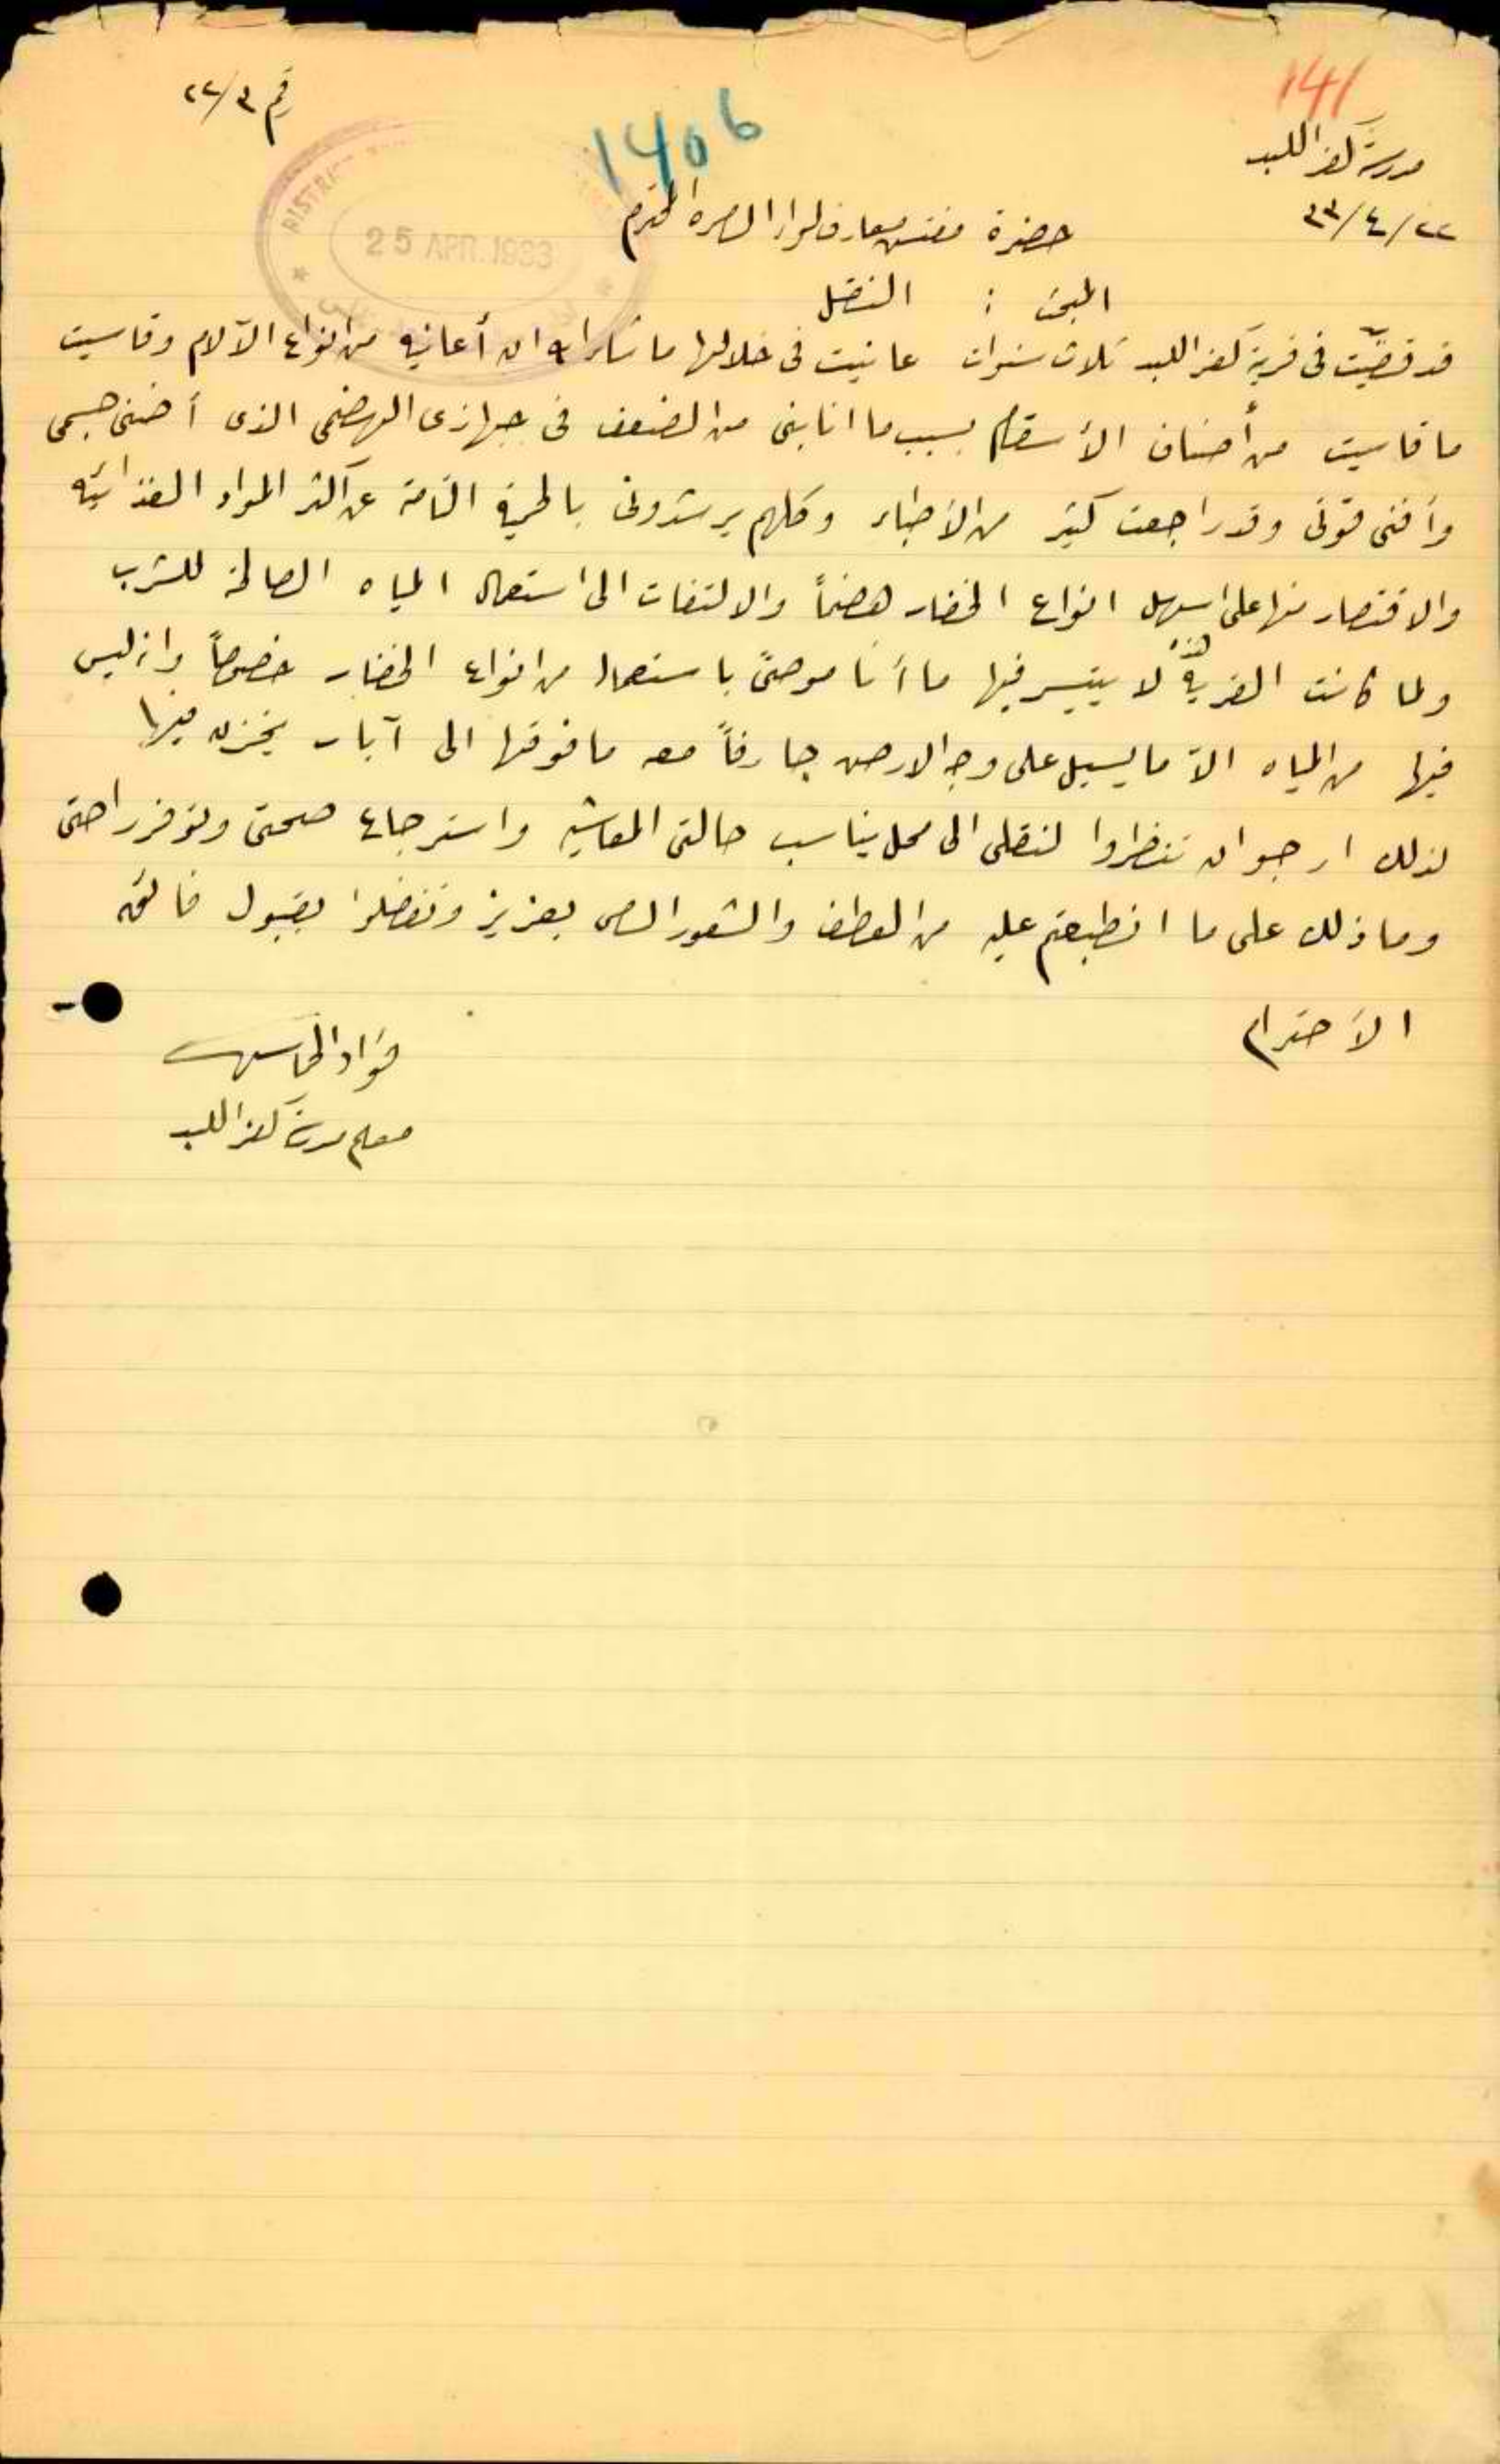 141
رقم ٣/٢٢
1406
مدرسة كفر اللبد
٢٢/٤/٣٣
25 APR. 1933
حضرة مفتش معارف لواء السامرة المحترم
المبحث : النقل
قد قضيّت في قرية كفر اللبد ثلاث سنوات عانيت في خلالها ما شاء الله ان أعانيه من انواع الآلام وقاسيت
ما قاسيت من أصناف الأسقام بسبب ما انتابني من الضعف في جهازي الهضمي الذي أضنى جسمي
وأفنى قوتي وقد راجعت كثير من الأطباء وكلهم يرشدوني بالحمية التامة عن اكثر المواد الغذائيه
والاقتصار منها على اسهل انواع الخضار هضماً والالتفات الى استعمال المياه الصالحة للشرب
ولما كانت القرية هذه لا يتيسر فيها ما أنا موصىً باستعماله من انواع الخضار خصوصاً وانه ليس
فيها من المياه الاّ ما يسيل على وجه الارض جارفاً معه ما فوقها الى آبار يخزن فيها
لذلك ارجو ان تنظروا لنقلي الى محل يناسب حالتي المعاشيه واسترجاع صحتي وتوفر راحتي
وما ذلك على ما انطبعتم عليه من العطف والشعور السامي بعزيز وتفضلوا بقبول فائق
الاحترام
فؤاد
معلم مدرسة كفر اللبد